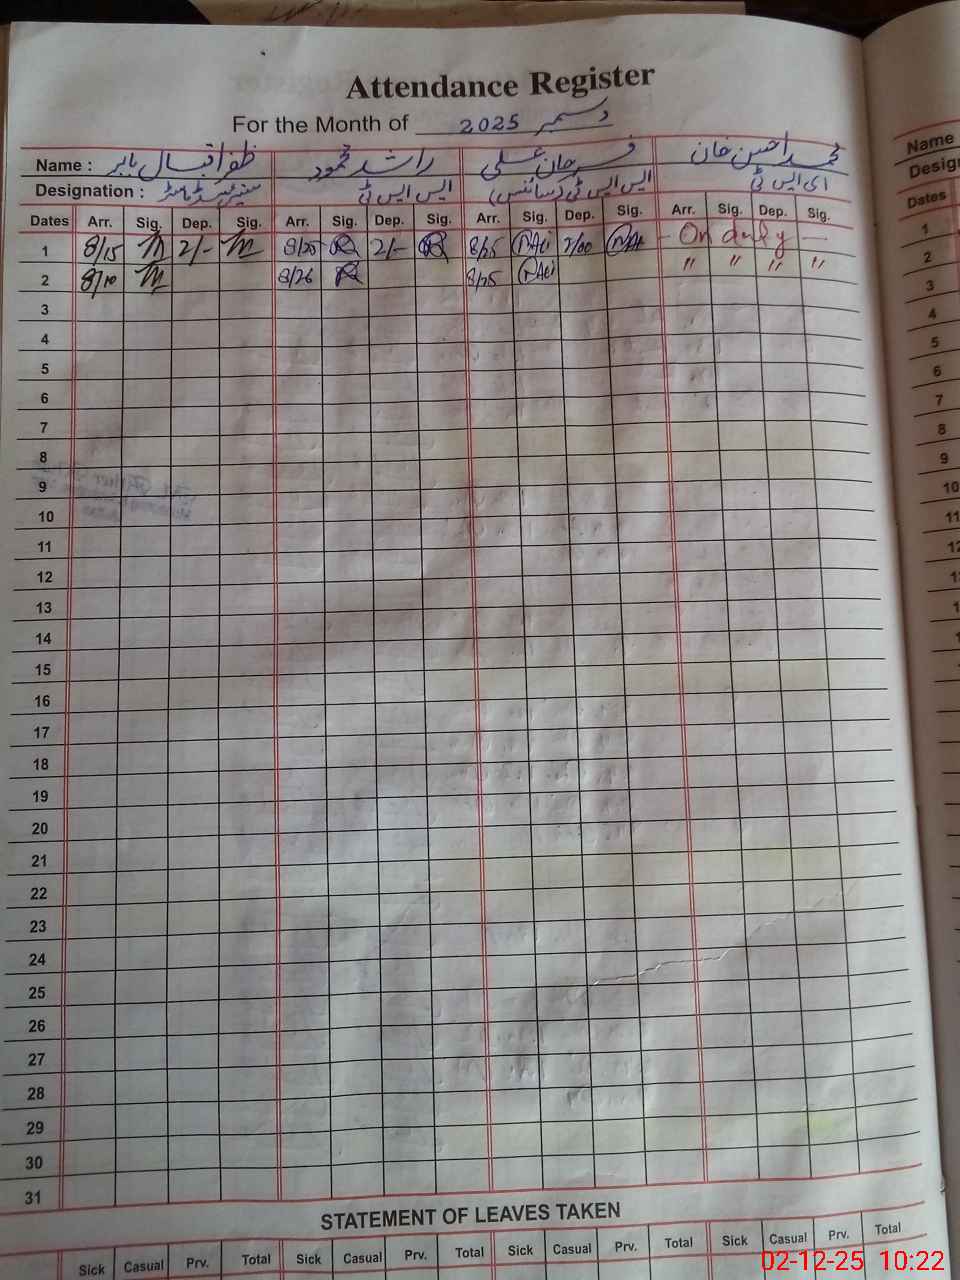 Attendance Register
For the Month of دسمبر 2025
Name : ظفر اقبال بابر راشد محمود فرحان علی محمد احسن خان
Designation : سینئر ہیڈ ماسٹر ایس ایس ٹی ایس ایس ٹی (سائنس) ای ایس ٹی
Dates Arr. Sig. Dep. Sig. Arr. Sig. Dep. Sig. Arr. Sig. Dep. Sig. Arr. Sig. Dep. Sig.
1 8/15 2/- 8/20 R 2/- R 8/25 2/00 - On duty -
2 8/10 8/26 R 8/25 " " " "
3
4
5
6
7
8
9
10
11
12
13
14
15
16
17
18
19
20
21
22
23
24
25
26
27
28
29
30
31
STATEMENT OF LEAVES TAKEN
Sick Casual Prv. Total Sick Casual Prv. Total Sick Casual Prv. Total Sick Casual Prv. Total
Name
Dates
1
2
3
4
5
6
7
8
9
10
02-12-25 10:22